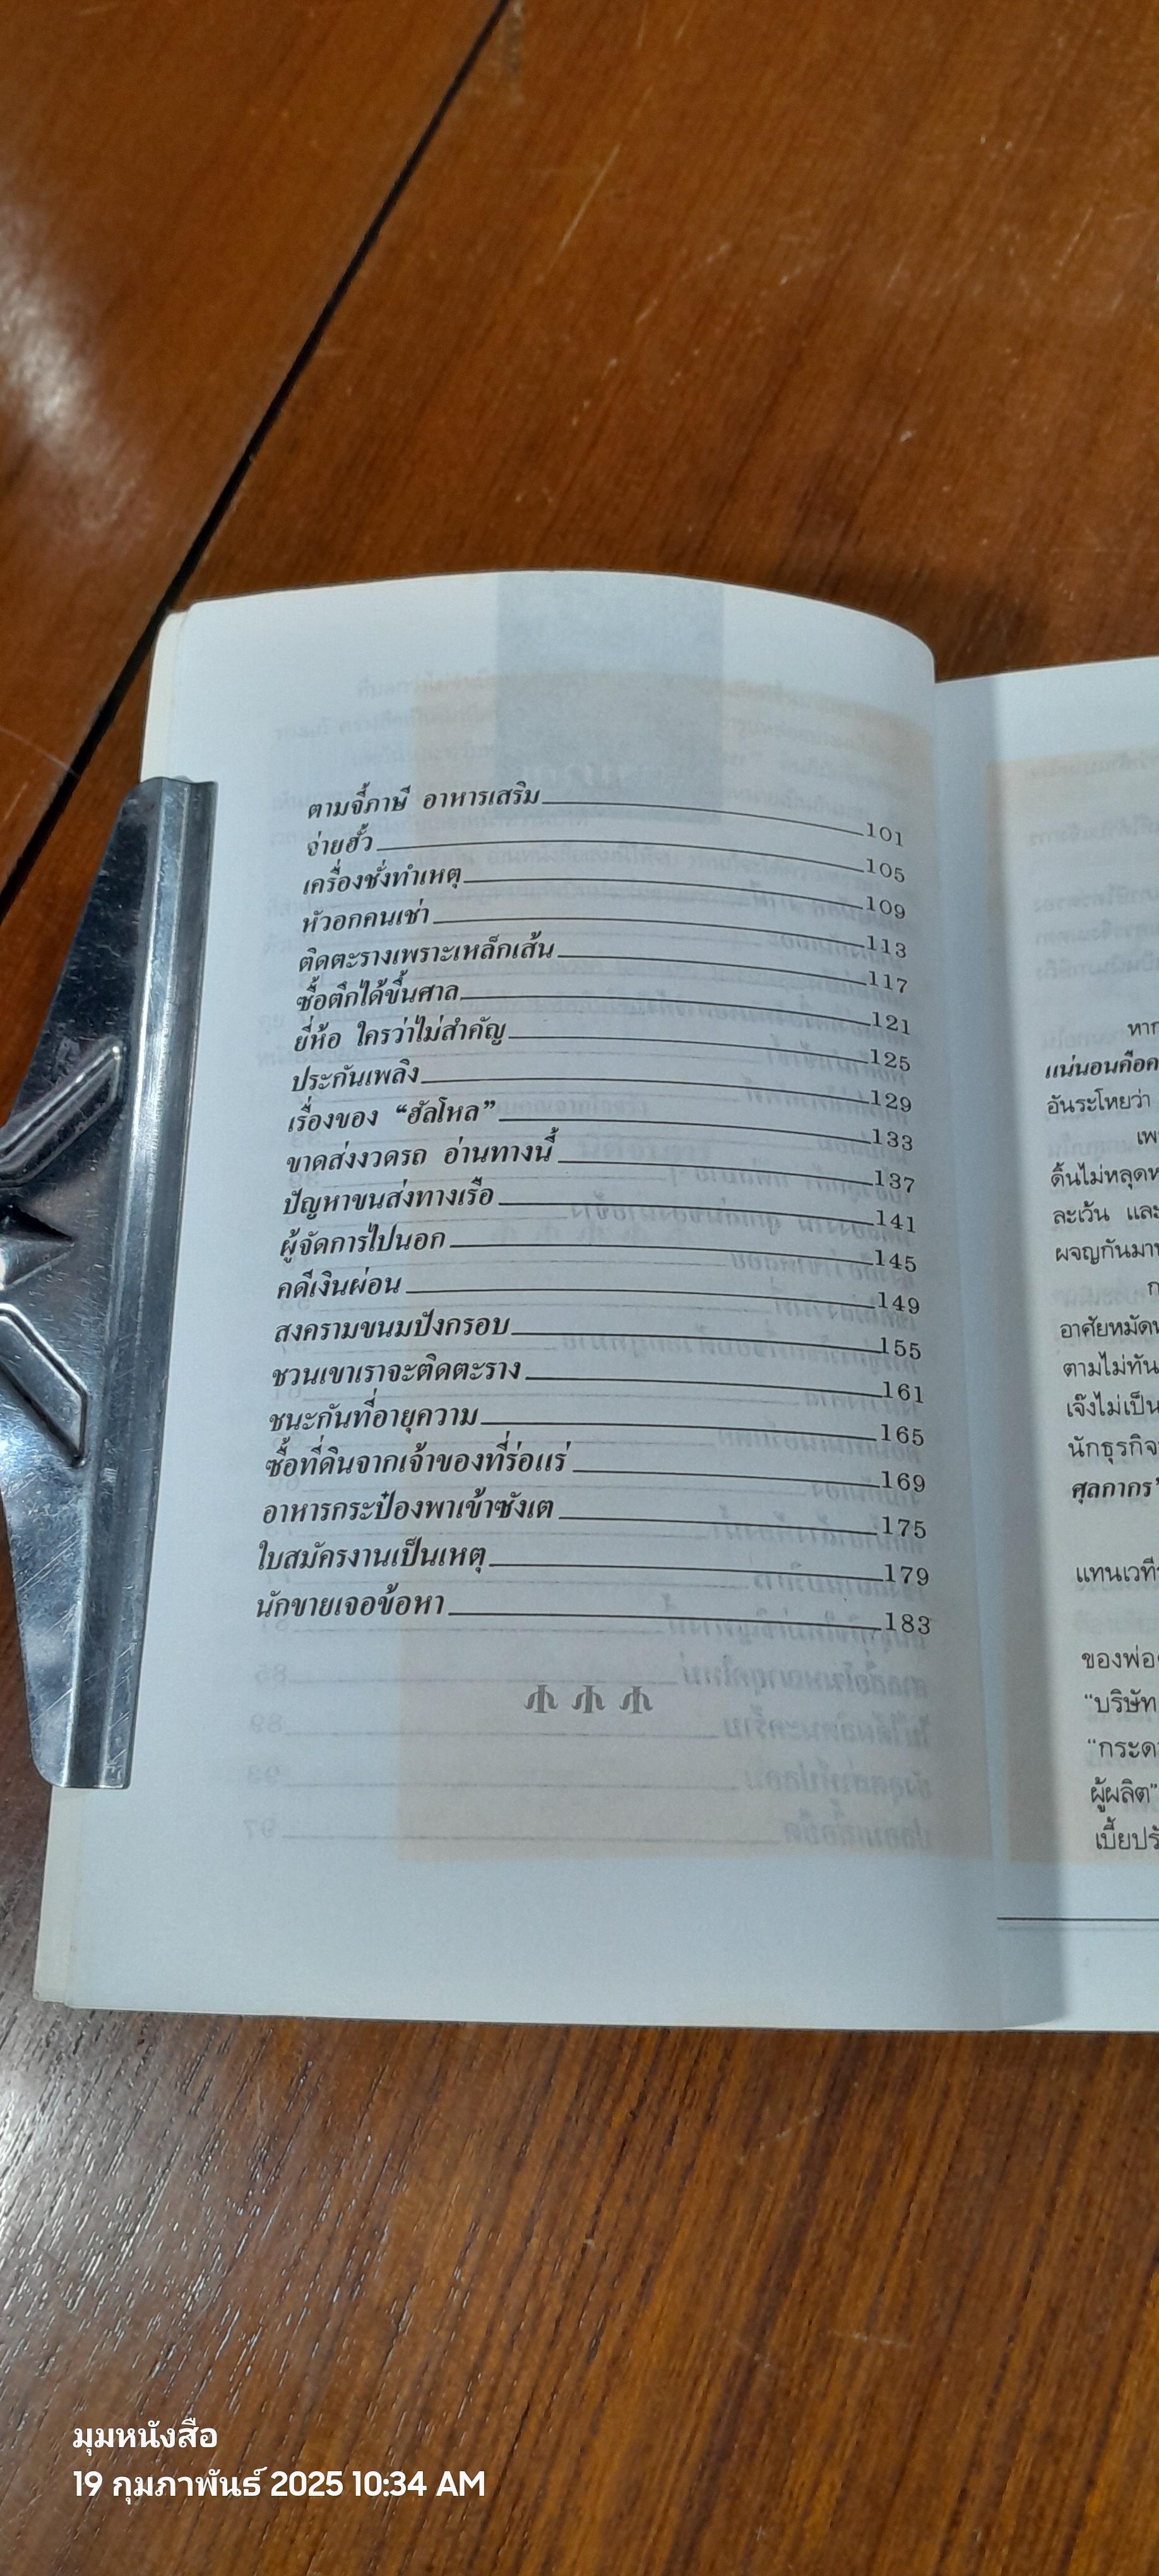 ตามจี้ภาษี อาหารเสริม 101
จ่ายฮั้ว 105
เครื่องชั่งทำเหตุ 109
หัวอกคนเช่า 113
ติดตะรางเพราะเหล็กเส้น 117
ซื้อตึกได้ขึ้นศาล 121
ยี่ห้อ ใครว่าไม่สำคัญ 125
ประกันเพลิง 129
เรื่องของ “ฮัลโหล” 133
ขาดส่งงวดรถ อ่านทางนี้ 137
ปัญหาขนส่งทางเรือ 141
ผู้จัดการไปนอก 145
คดีเงินผ่อน 149
สงครามขนมปังกรอบ 155
ชวนเขาเราจะติดตะราง 161
ชนะกันที่อายุความ 165
ซื้อที่ดินจากเจ้าของที่ร่อแร่ 169
อาหารกระป๋องพาเข้าซังเต 175
ใบสมัครงานเป็นเหตุ 179
นักขายเจอข้อหา 183
หาก
แน่นอนคือค
อันระโหยว่า
เพ
ดิ้นไม่หลุด
ละเว้น และ
ผจญกันมา
ก
อาศัยหมัด
ตามไม่ทัน
เจ๊งไม่เป็น
นักธุรกิจ
ศุลกากร”
แทนเวที
ของพ่อ
“บริษัท
“กระดา
ผู้ผลิต”
เบี้ยปรั
มุมหนังสือ
19 กุมภาพันธ์ 2025 10:34 AM